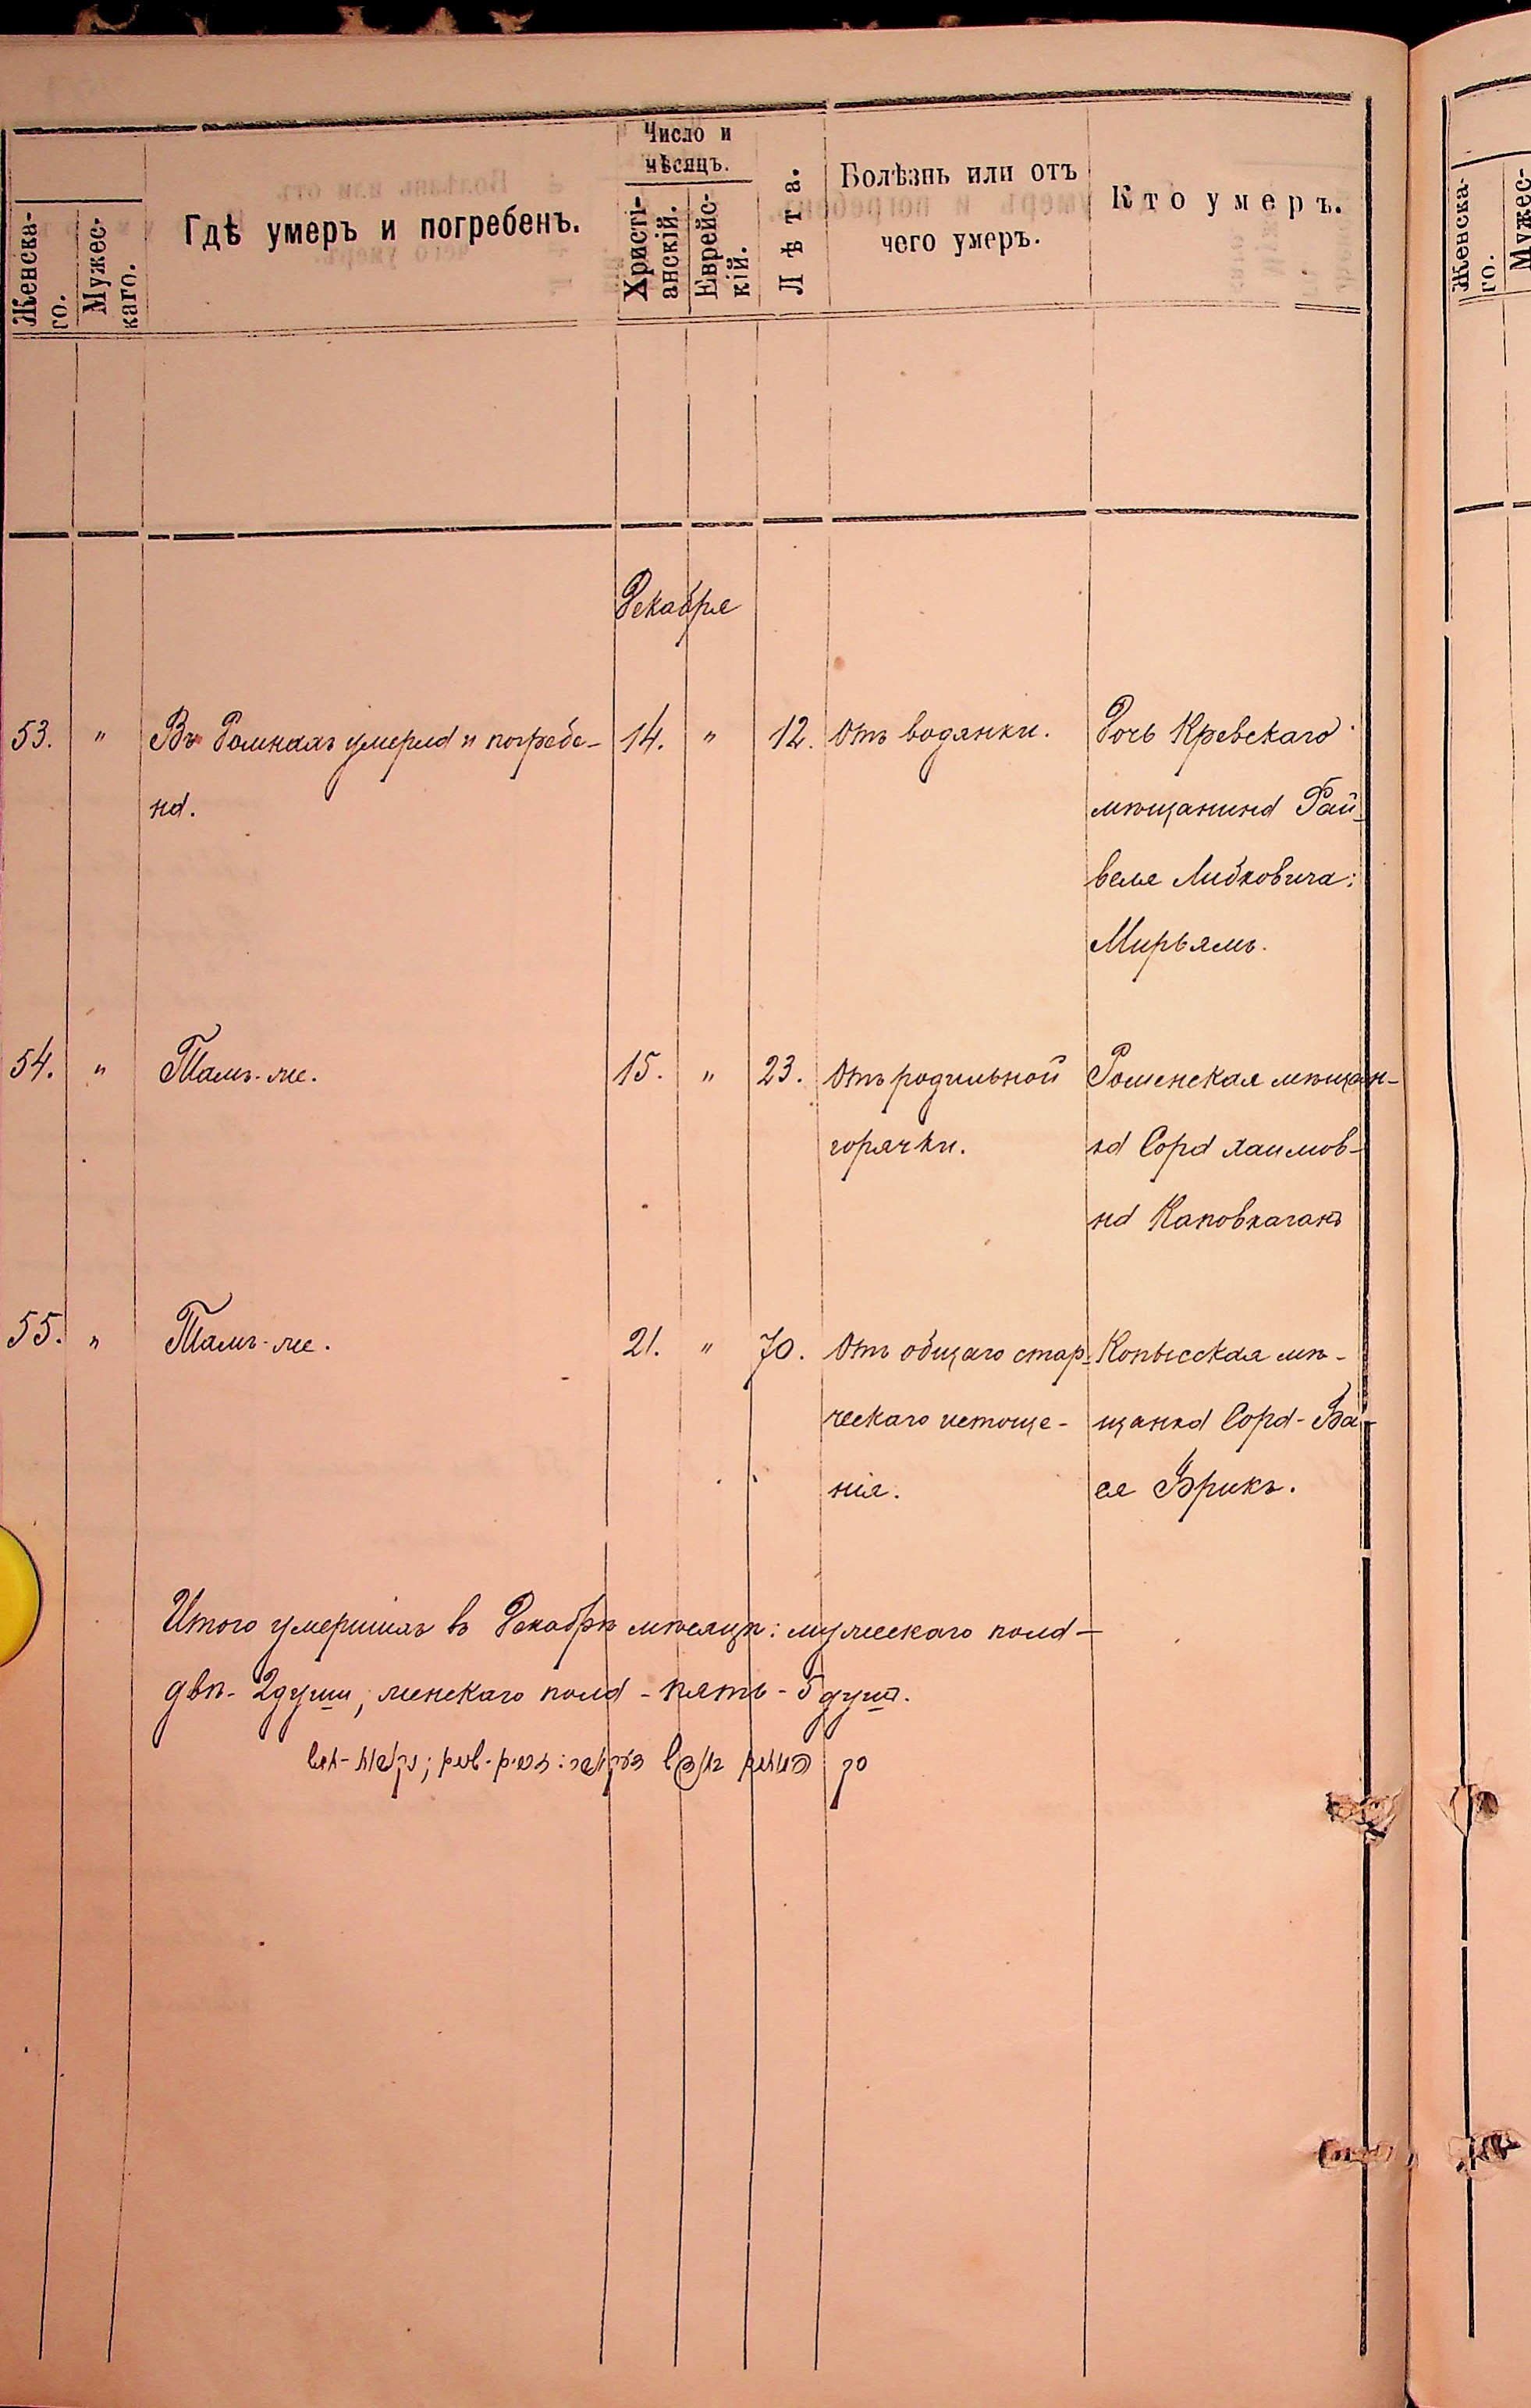 Женска-
го.
Мужес-
каго.
Гдѣ умеръ и погребенъ.
Число и
мѣсяцъ.
Христі-
анскій.
Еврейс-
кій.
Лѣта.
Болѣзнь или отъ
чего умеръ.
Кто умеръ.
Декабря
53. " Въ Ромнахъ умерла и погребе- 14. " 12. Отъ водянки. Дочь Кревскаго
на. мѣщанина Фай-
веля Либковича:
Мирьямъ.
54. " Тамъ-же. 15. " 23. Отъ родильной Роменская мѣщан-
горячки. ка Сора Хаимов-
на
55. " Тамъ-же. 21. " 70. Отъ общаго стар- Копысская мѣ-
ческаго истоще- щанка Сора-Ба-
нія. ся Брикъ.
Итого умершихъ въ Декабрѣ мѣсяцѣ: мужескаго пола -
двѣ - 2 души, женскаго пола - пять - 5 душъ.
Женска-
го.
Мужес-